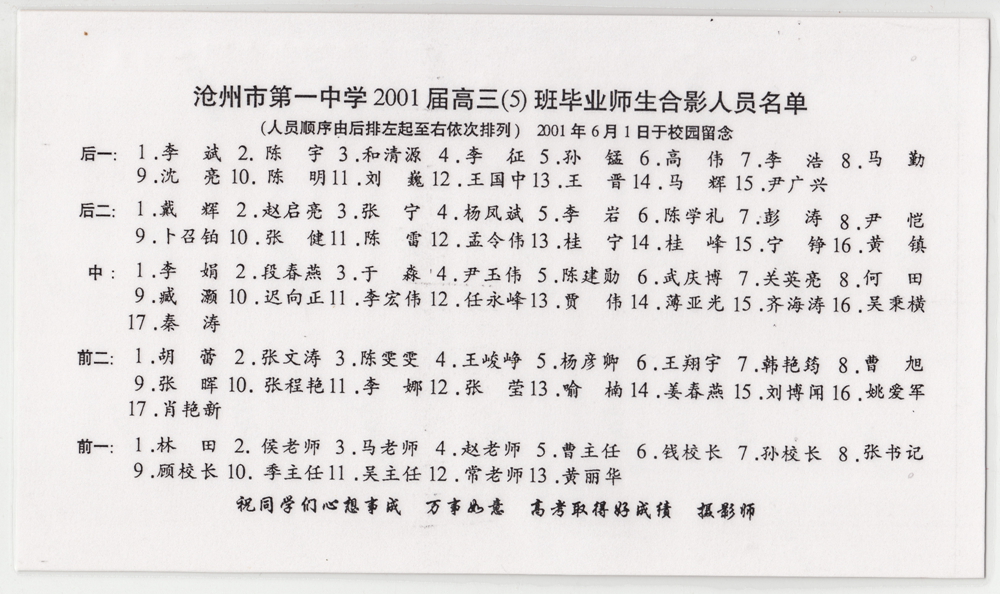 沧州市第一中学2001届高三(5)班毕业师生合影人员名单
(人员顺序由后排左起至右依次排列) 2001年6月1日于校园留念
后一: 1.李 斌 2.陈 宇 3.和清源 4.李 征 5.孙 锰 6.高 伟 7.李 浩 8.马 勤
9.沈 亮 10.陈 明 11.刘 巍 12.王国中 13.王 晋 14.马 辉 15.尹广兴
后二: 1.戴 辉 2.赵启亮 3.张 宁 4.杨凤斌 5.李 岩 6.陈学礼 7.彭 涛 8.尹 恺
9.卜召铂 10.张 健 11.陈 雷 12.孟令伟 13.桂 宁 14.桂 峰 15.宁 铮 16.黄 镇
中: 1.李 娟 2.段春燕 3.于 淼 4.尹玉伟 5.陈建勋 6.武庆博 7.关英亮 8.何 田
9.臧 灏 10.迟向正 11.李宏伟 12.任永峰 13.贾 伟 14.薄亚光 15.齐海涛 16.吴秉横
17.秦 涛
前二: 1.胡 蕾 2.张文涛 3.陈雯雯 4.王峻峥 5.杨彦卿 6.王翔宇 7.韩艳筠 8.曹 旭
9.张 晖 10.张程艳 11.李 娜 12.张 莹 13.喻 楠 14.姜春燕 15.刘博闻 16.姚爱军
17.肖艳新
前一: 1.林 田 2.侯老师 3.马老师 4.赵老师 5.曹主任 6.钱校长 7.孙校长 8.张书记
9.顾校长 10.季主任 11.吴主任 12.常老师 13.黄丽华
祝同学们心想事成 万事如意 高考取得好成绩 摄影师